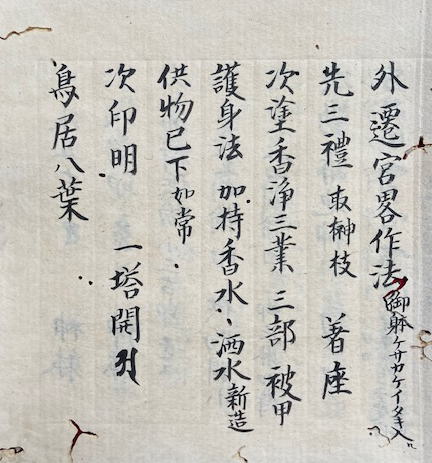 外遷宮畧作法御躰ケサカケイタキ入
先三禮 取榊枝 著座
次塗香浄三業 三部 被甲
護身法 加持香水 洒水新造
供物已下如常
次印明 一塔開
鳥居八葉